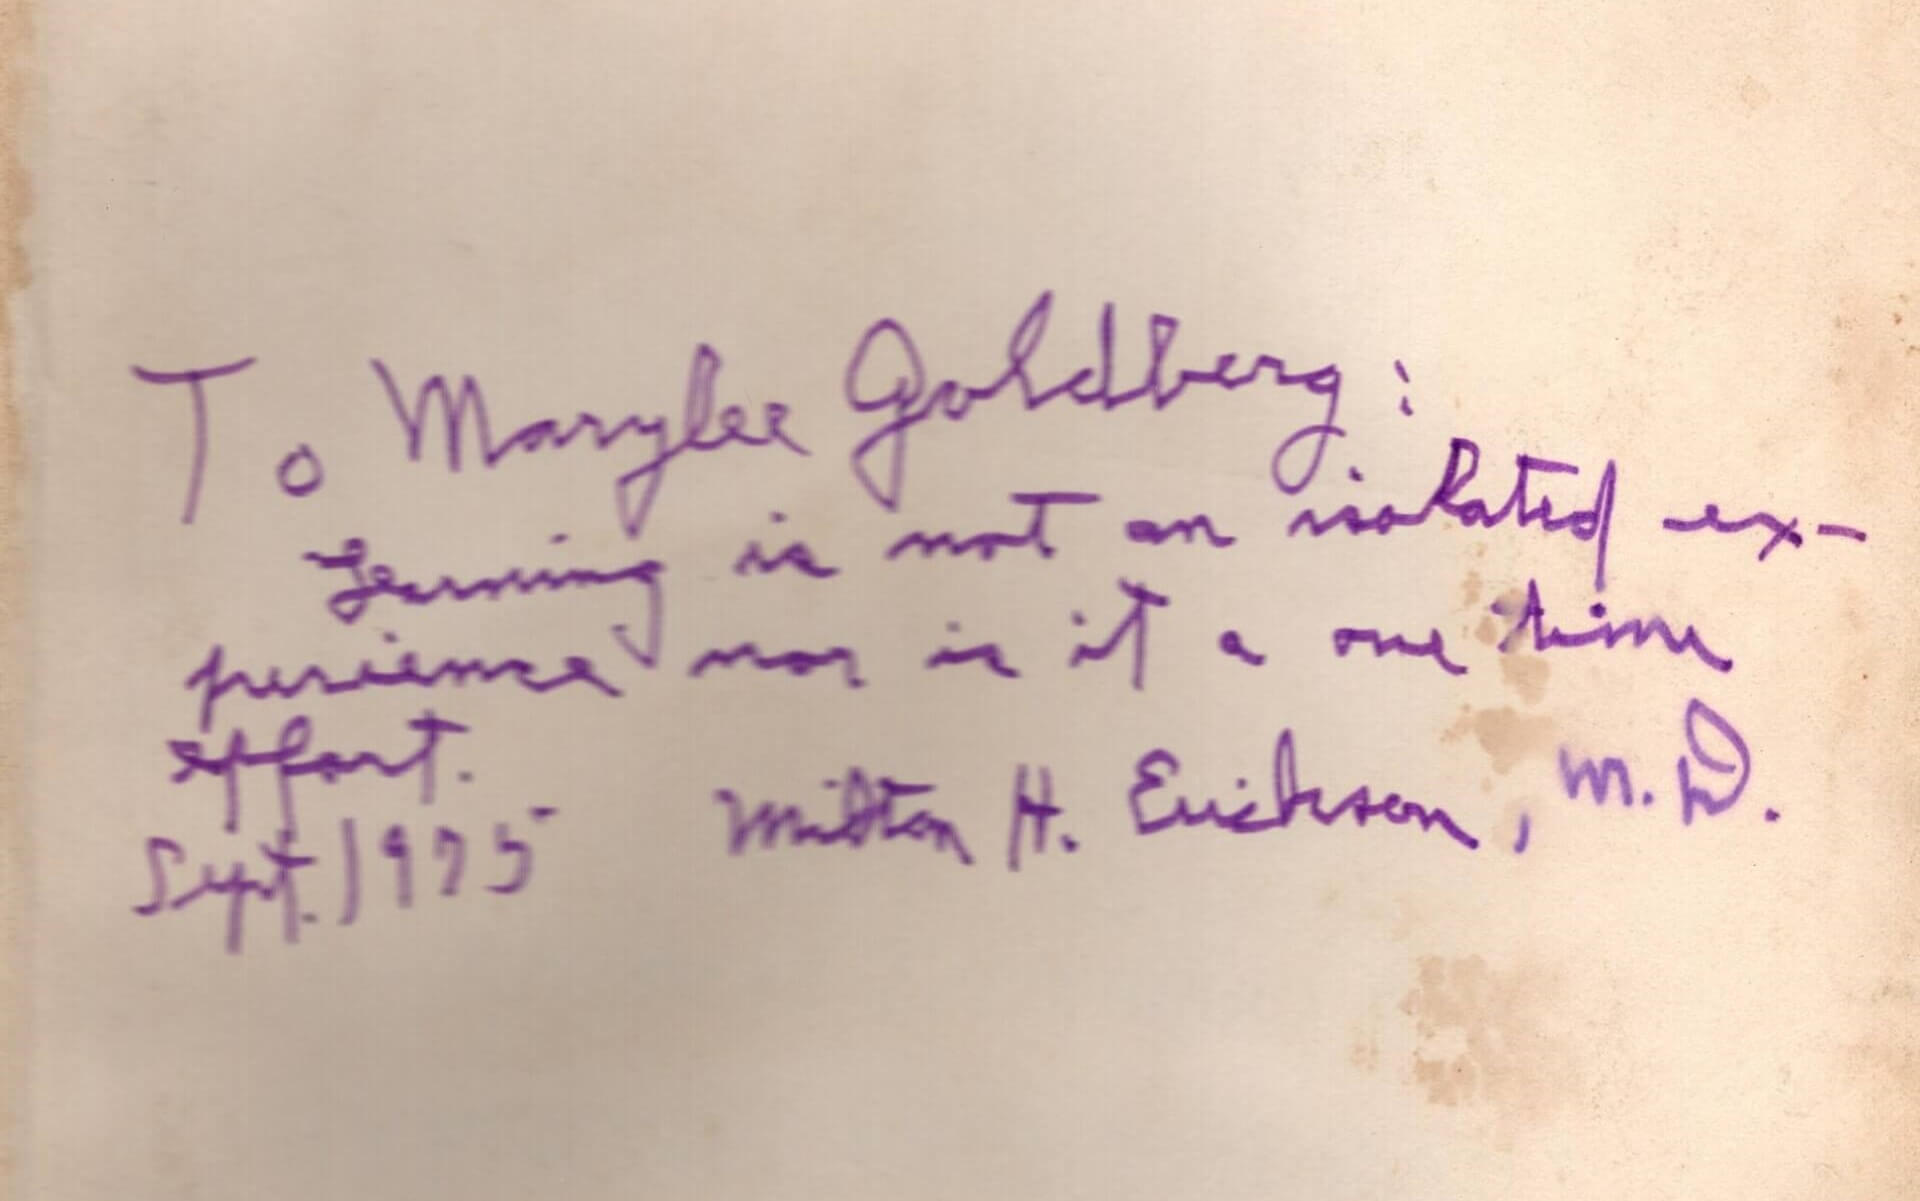 To Marylee Goldberg:
Learning is not an isolated ex-
perience nor is it a one time
effort.
Sept. 1975 Milton H. Erickson, M.D.